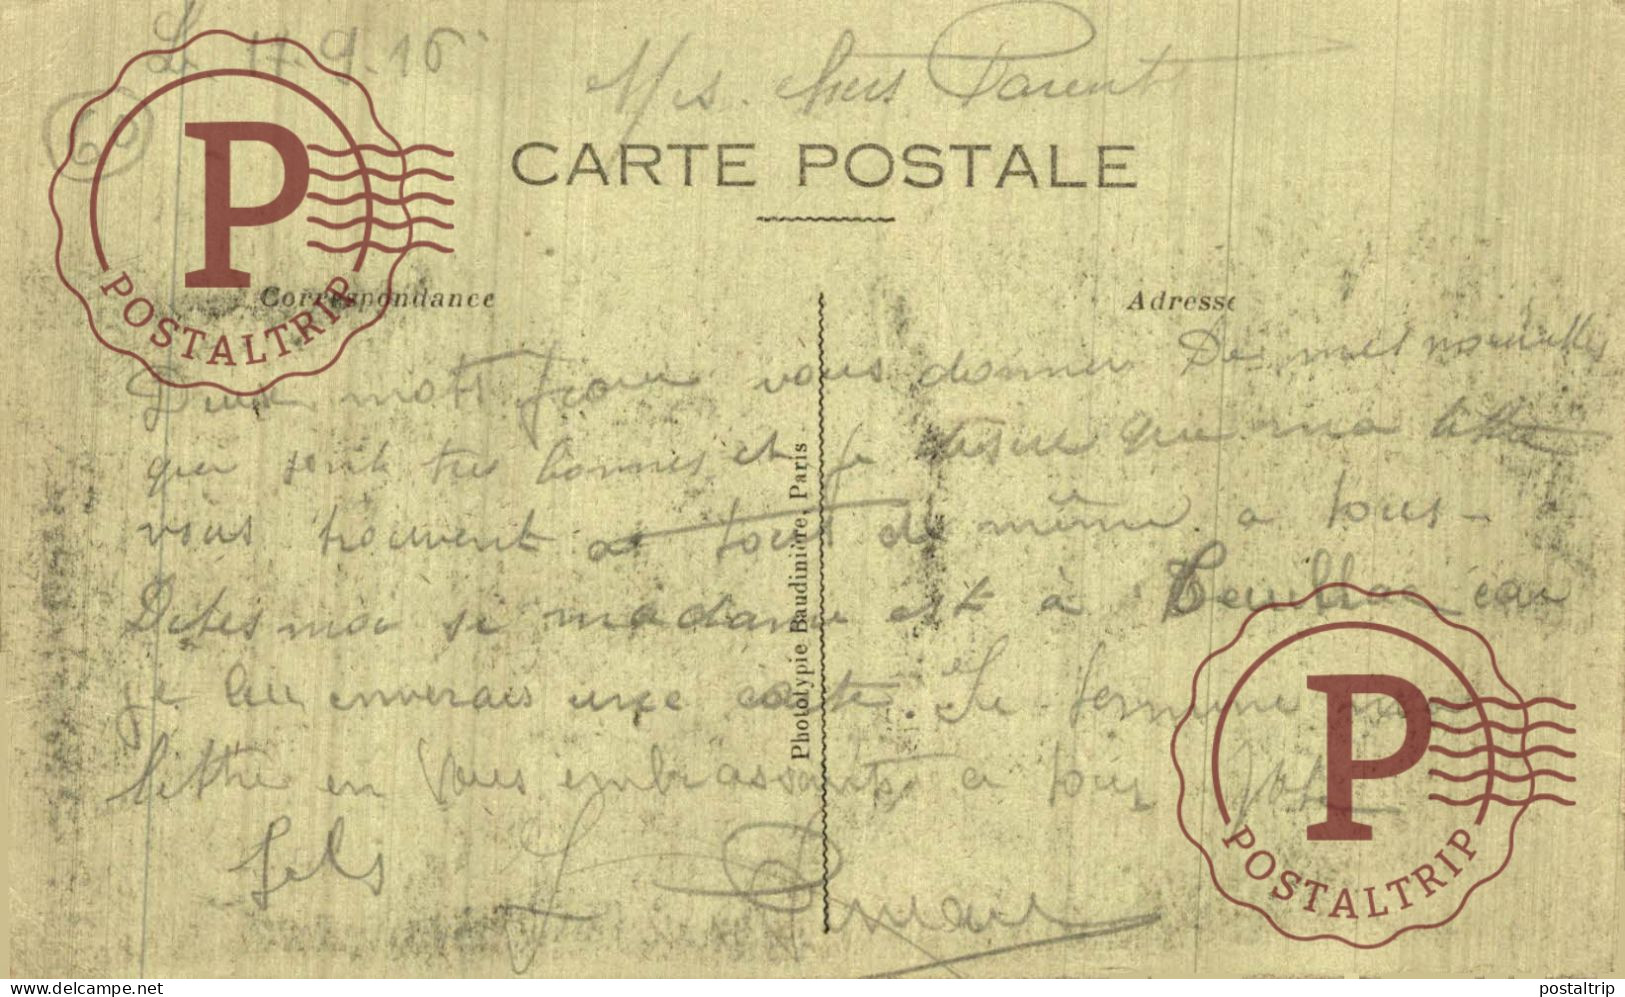 Le 17.9.16
60
Mes chers Parent
CARTE POSTALE
Correspondance
Adresse
Deux mots pour vous donner De mes nouvelles
qui sont tres bonnes et je désire que ma lettre
vous trouvent de même a tous
Dites moi si madame est à car
je lui enverais une carte Je termine ma
lettre en Vous embrassants a tous votre
fils
Phototypie Baudinière, Paris
P
POSTALTRIP
P
POSTALTRIP
www.delcampe.net
postaltrip